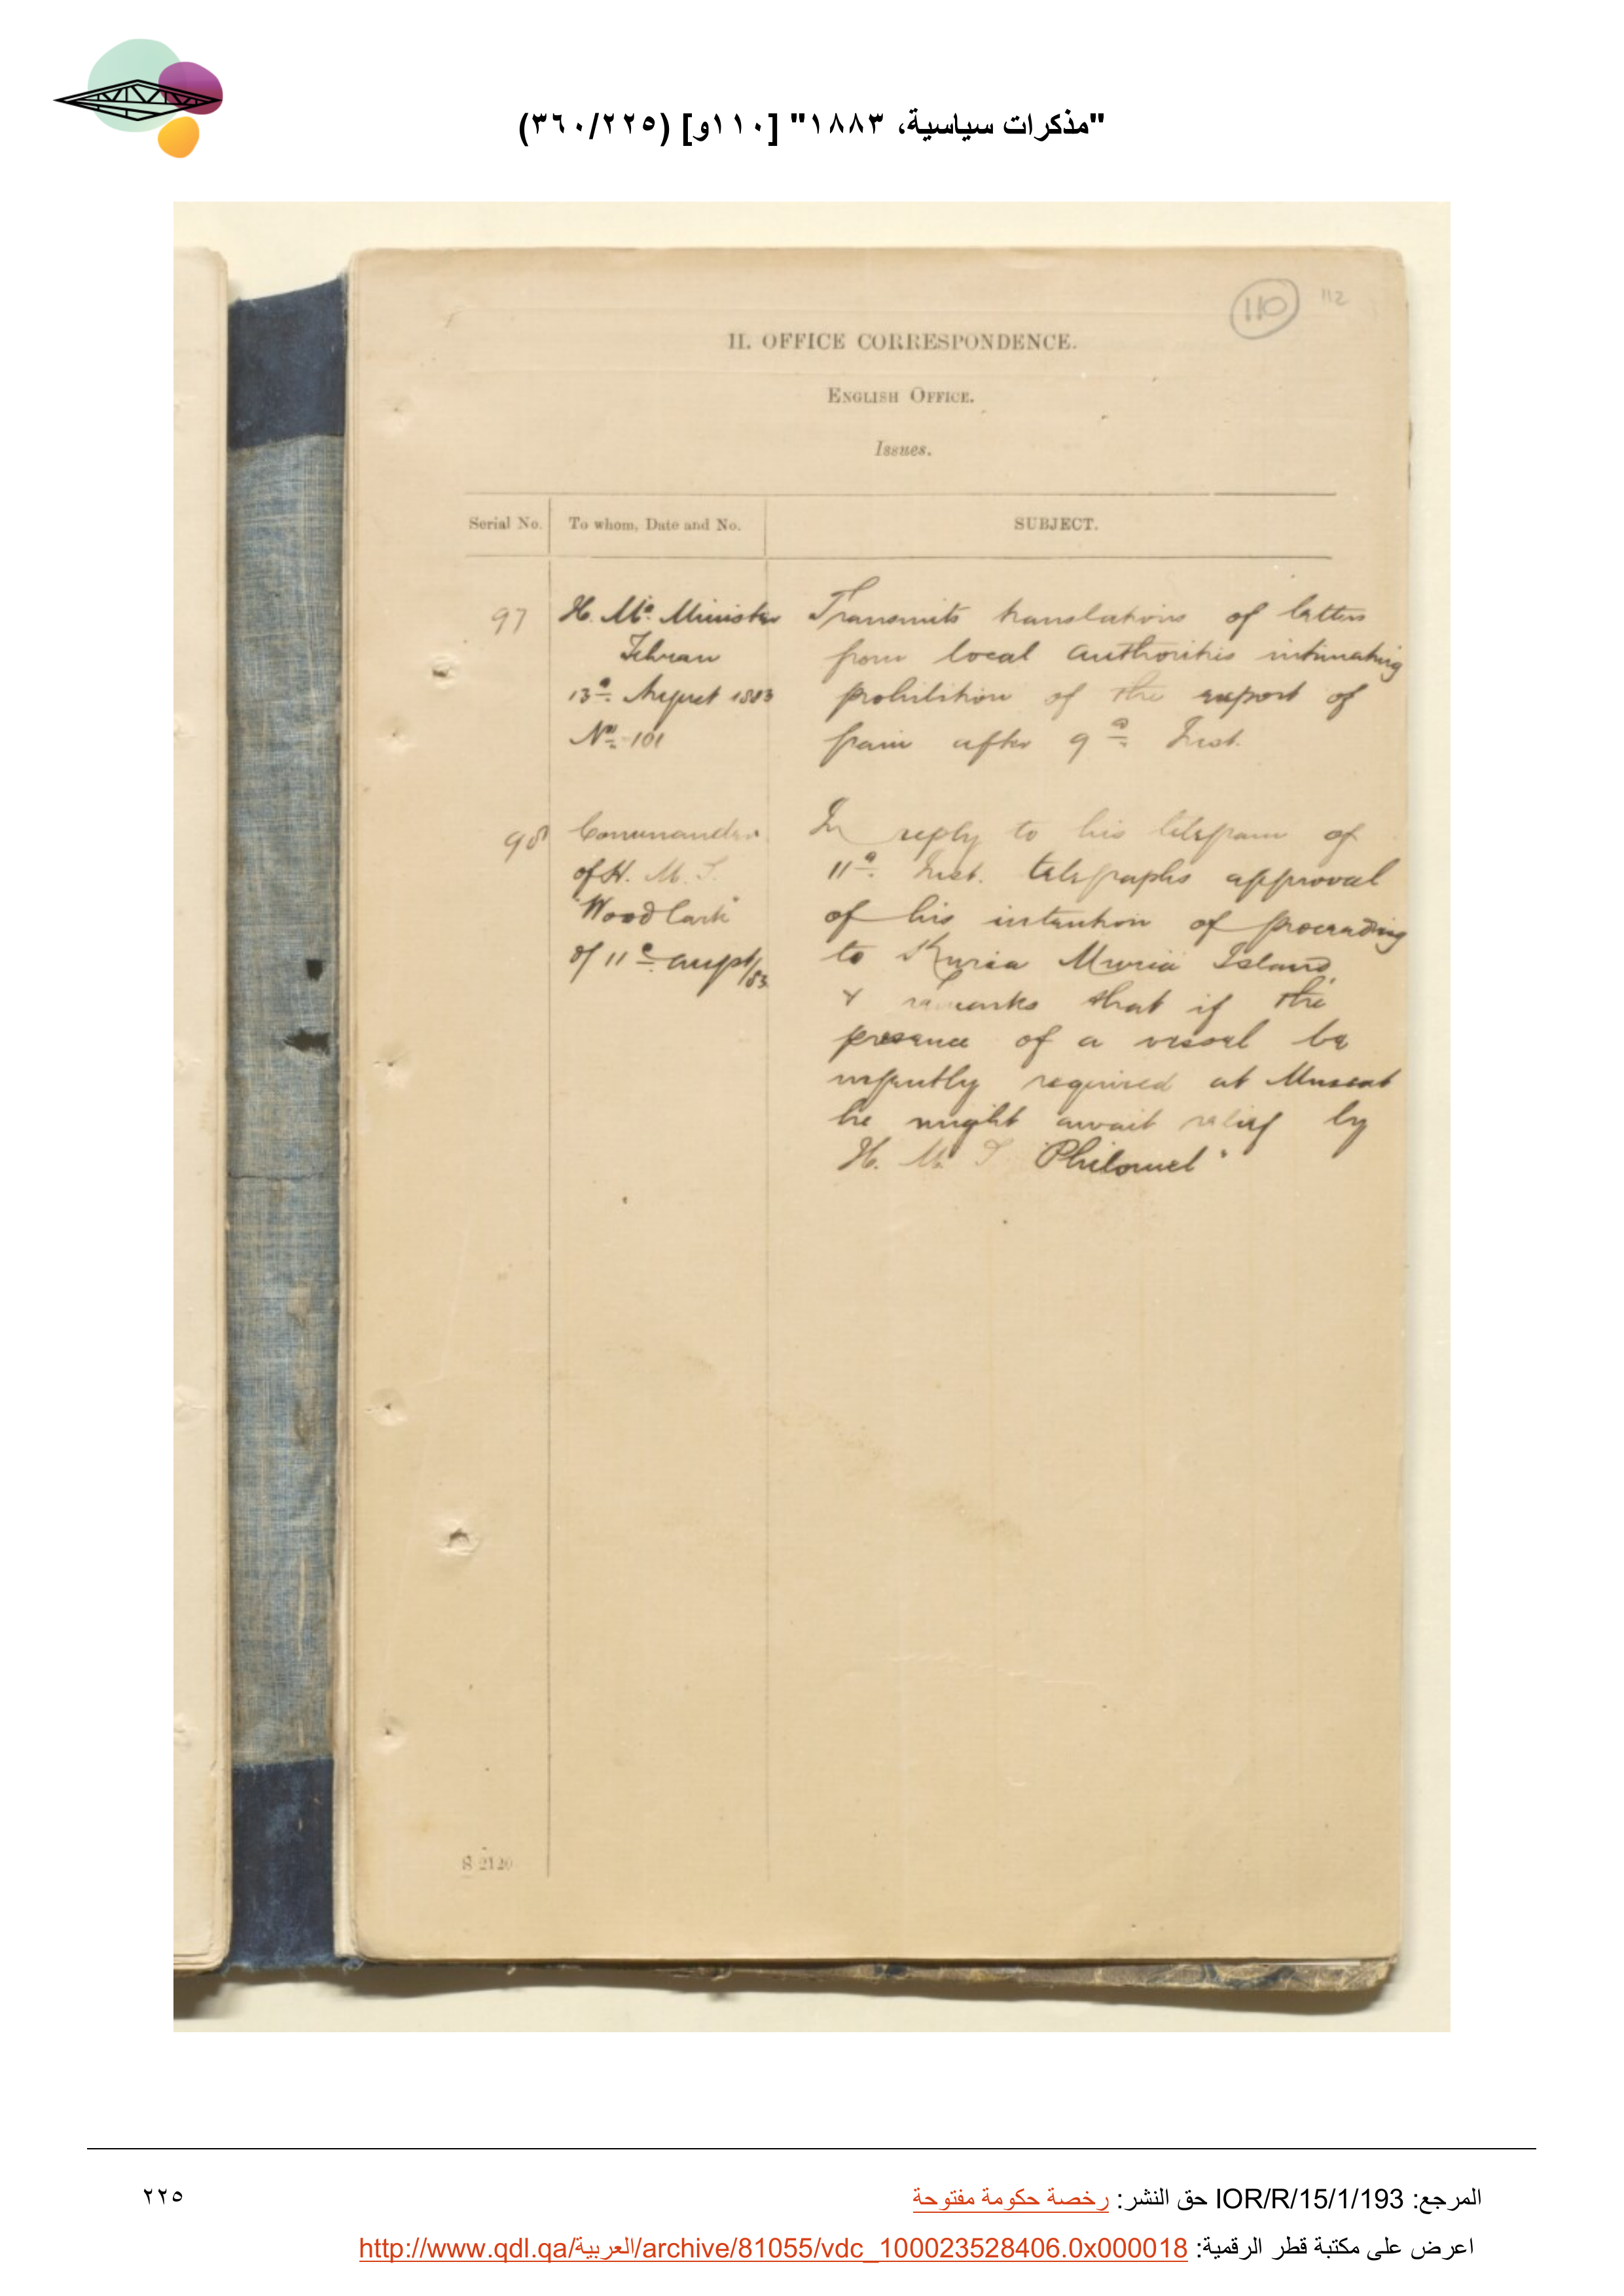 "مذكرات سياسية، ١٨٨٣" [١١٠و] (٣٦٠/٢٢٥)
110 112
II. OFFICE CORRESPONDENCE.
ENGLISH OFFICE.
Issues.
Serial No. To whom, Date and No. SUBJECT.
97 H. Ms. Minister Transmits translations of letters
Tehran from local authorities intimating
13th. August 1883 prohibition of the export of
No. 101 grain after 9th. Inst.
98 Commander In reply to his telegram of
of H. M. S. 11th. Inst. telegraphs approval
"Woodlark" of his intention of proceeding
of 11th August/83 to Kuria Muria Island,
& remarks that if the
presence of a vessel be
urgently required at Muscat
he might await relief by
H. M. S "Philomel"
S 2120
المرجع: IOR/R/15/1/193 حق النشر: رخصة حكومة مفتوحة
٢٢٥
اعرض على مكتبة قطر الرقمية: http://www.qdl.qa/العربية/archive/81055/vdc_100023528406.0x000018